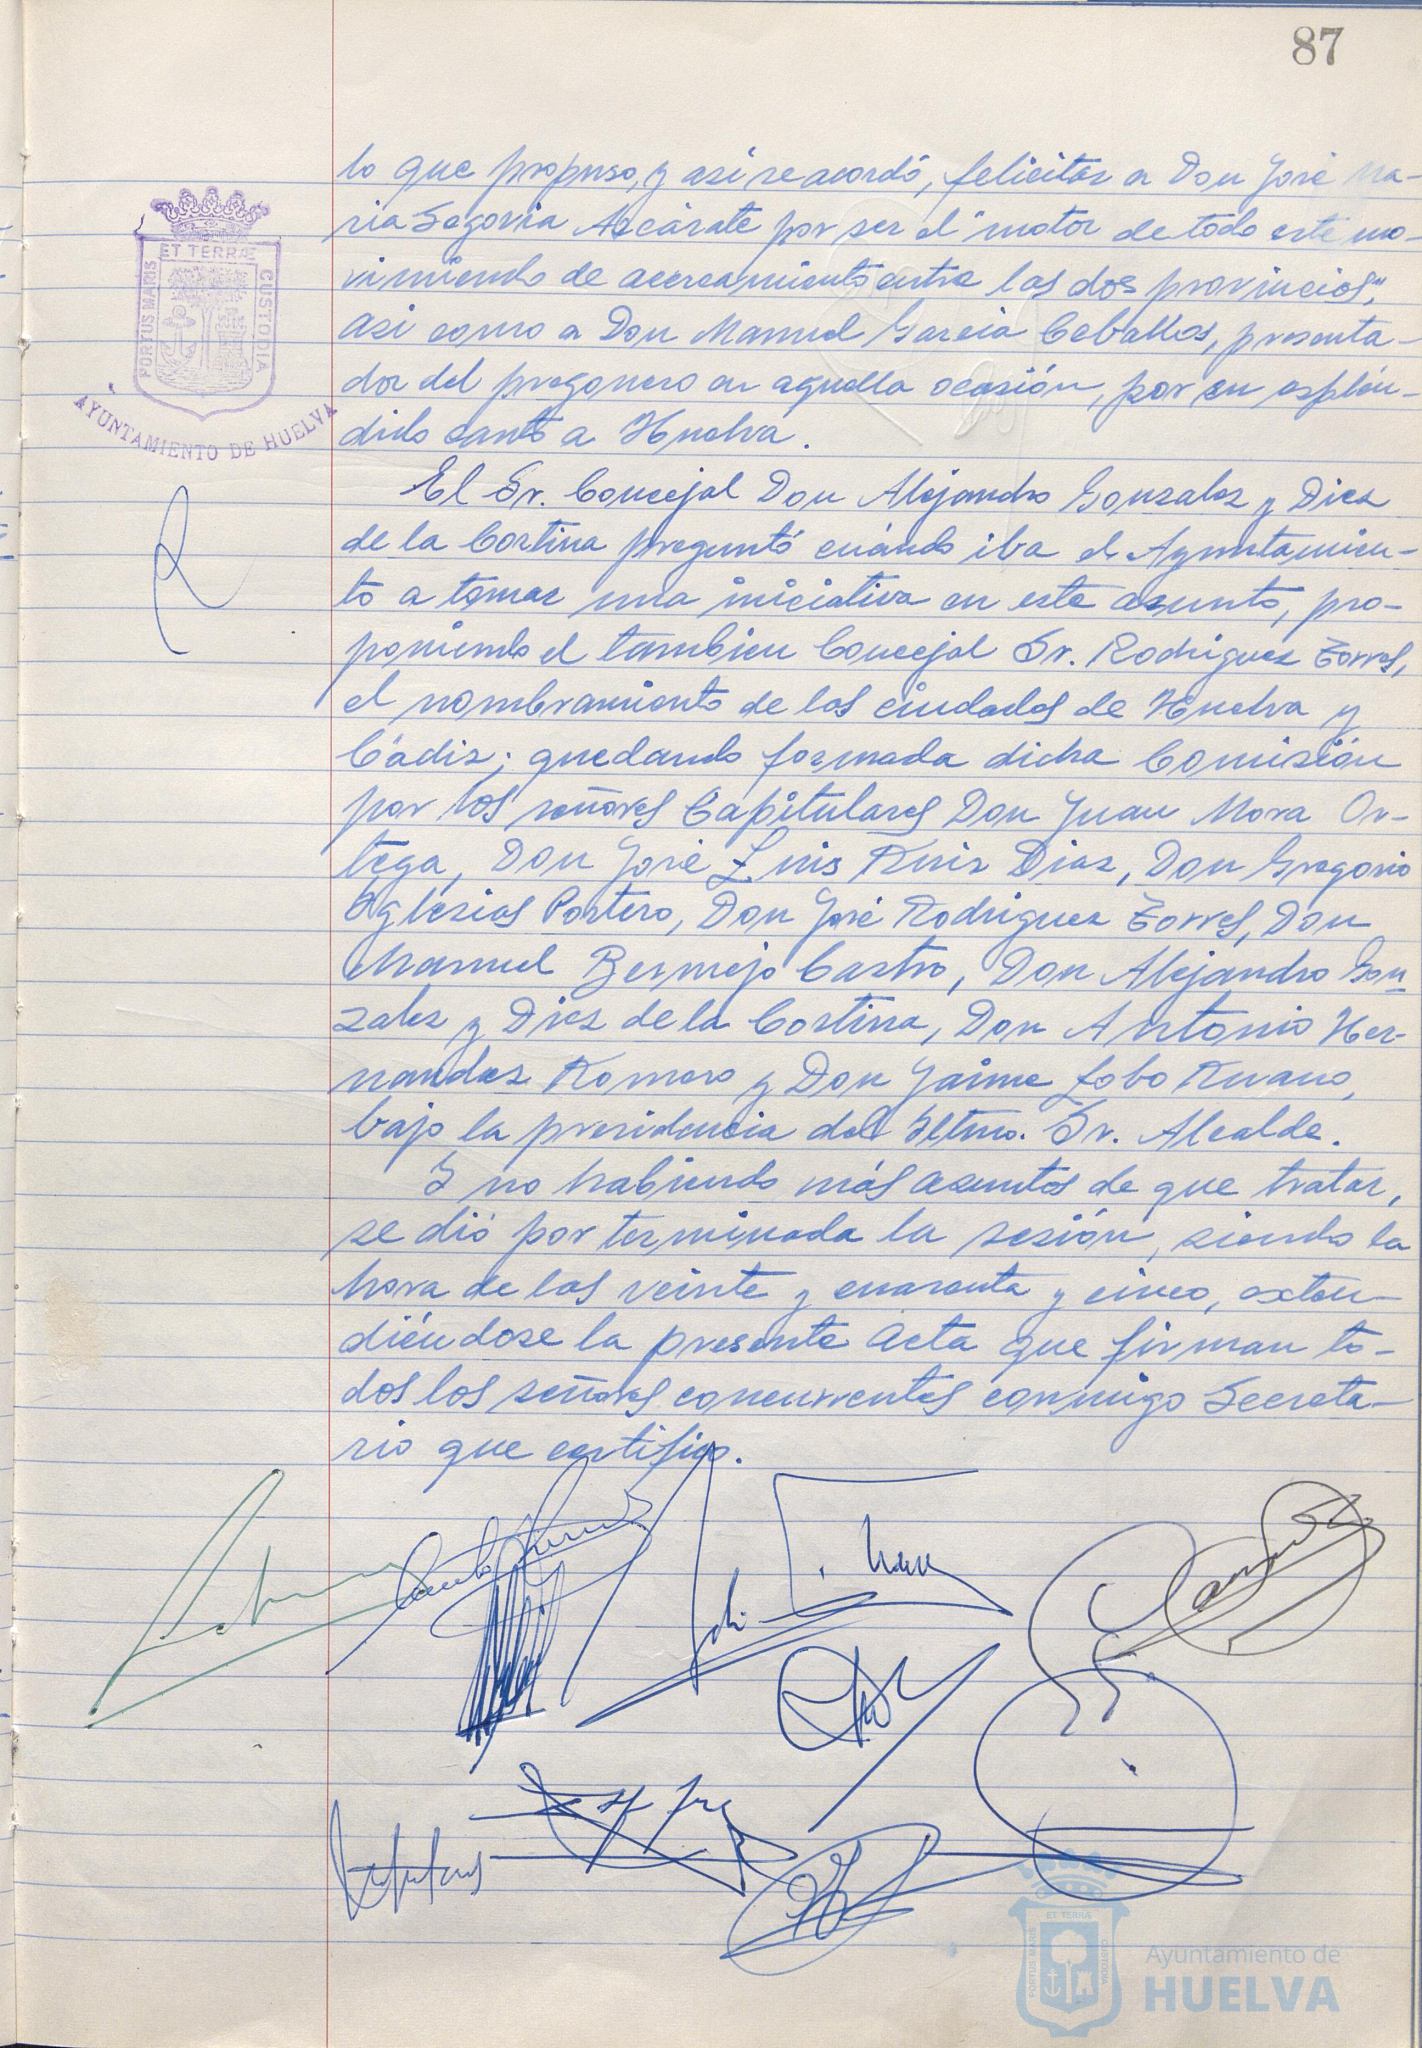 87
ET TERRÆ
PORTUS MARIS
CUSTODIA
AYUNTAMIENTO DE HUELVA
lo que propuso, y así se acordó, felicitar a Don José Ma-
ria Segovia Azcárate por ser el "motor de todo este mo-
vimiendo de acercamiento entre las dos provincias",
así como a Don Manuel García Ceballos, presenta-
dor del pregonero en aquella ocasión, por su esplén-
dido canto a Huelva.
El Sr. Concejal Don Alejandro Gonzalez y Diez
de la Cortina preguntó cuándo iba el Ayuntamien-
to a tomar una iniciativa en este asunto, pro-
poniendo el tambien Concejal Sr. Rodriguez Torres,
el nombramiento de las ciudades de Huelva y
Cádiz; quedando formada dicha Comisión
por los señores Capitulares Don Juan Mora Or-
tega, Don José Luis Ruiz Diaz, Don Gregorio
Yglesias Portero, Don José Rodriguez Torres, Don
Manuel Bermejo Castro, Don Alejandro Gon-
zalez y Diez de la Cortina, Don Antonio Her-
nandez Romero y Don Jaime Lobo Ruano,
bajo la presidencia del Iltmo. Sr. Alcalde.
Y no habiendo más asuntos de que tratar,
se dió por terminada la sesión, siendo la
hora de las veinte y cuarenta y cinco, exten-
diéndose la presente Acta que firman to-
dos los señores concurrentes conmigo Secreta-
rio que certifico.
ET TERRÆ
PORTUS MARIS
CUSTODIA
Ayuntamiento de
HUELVA